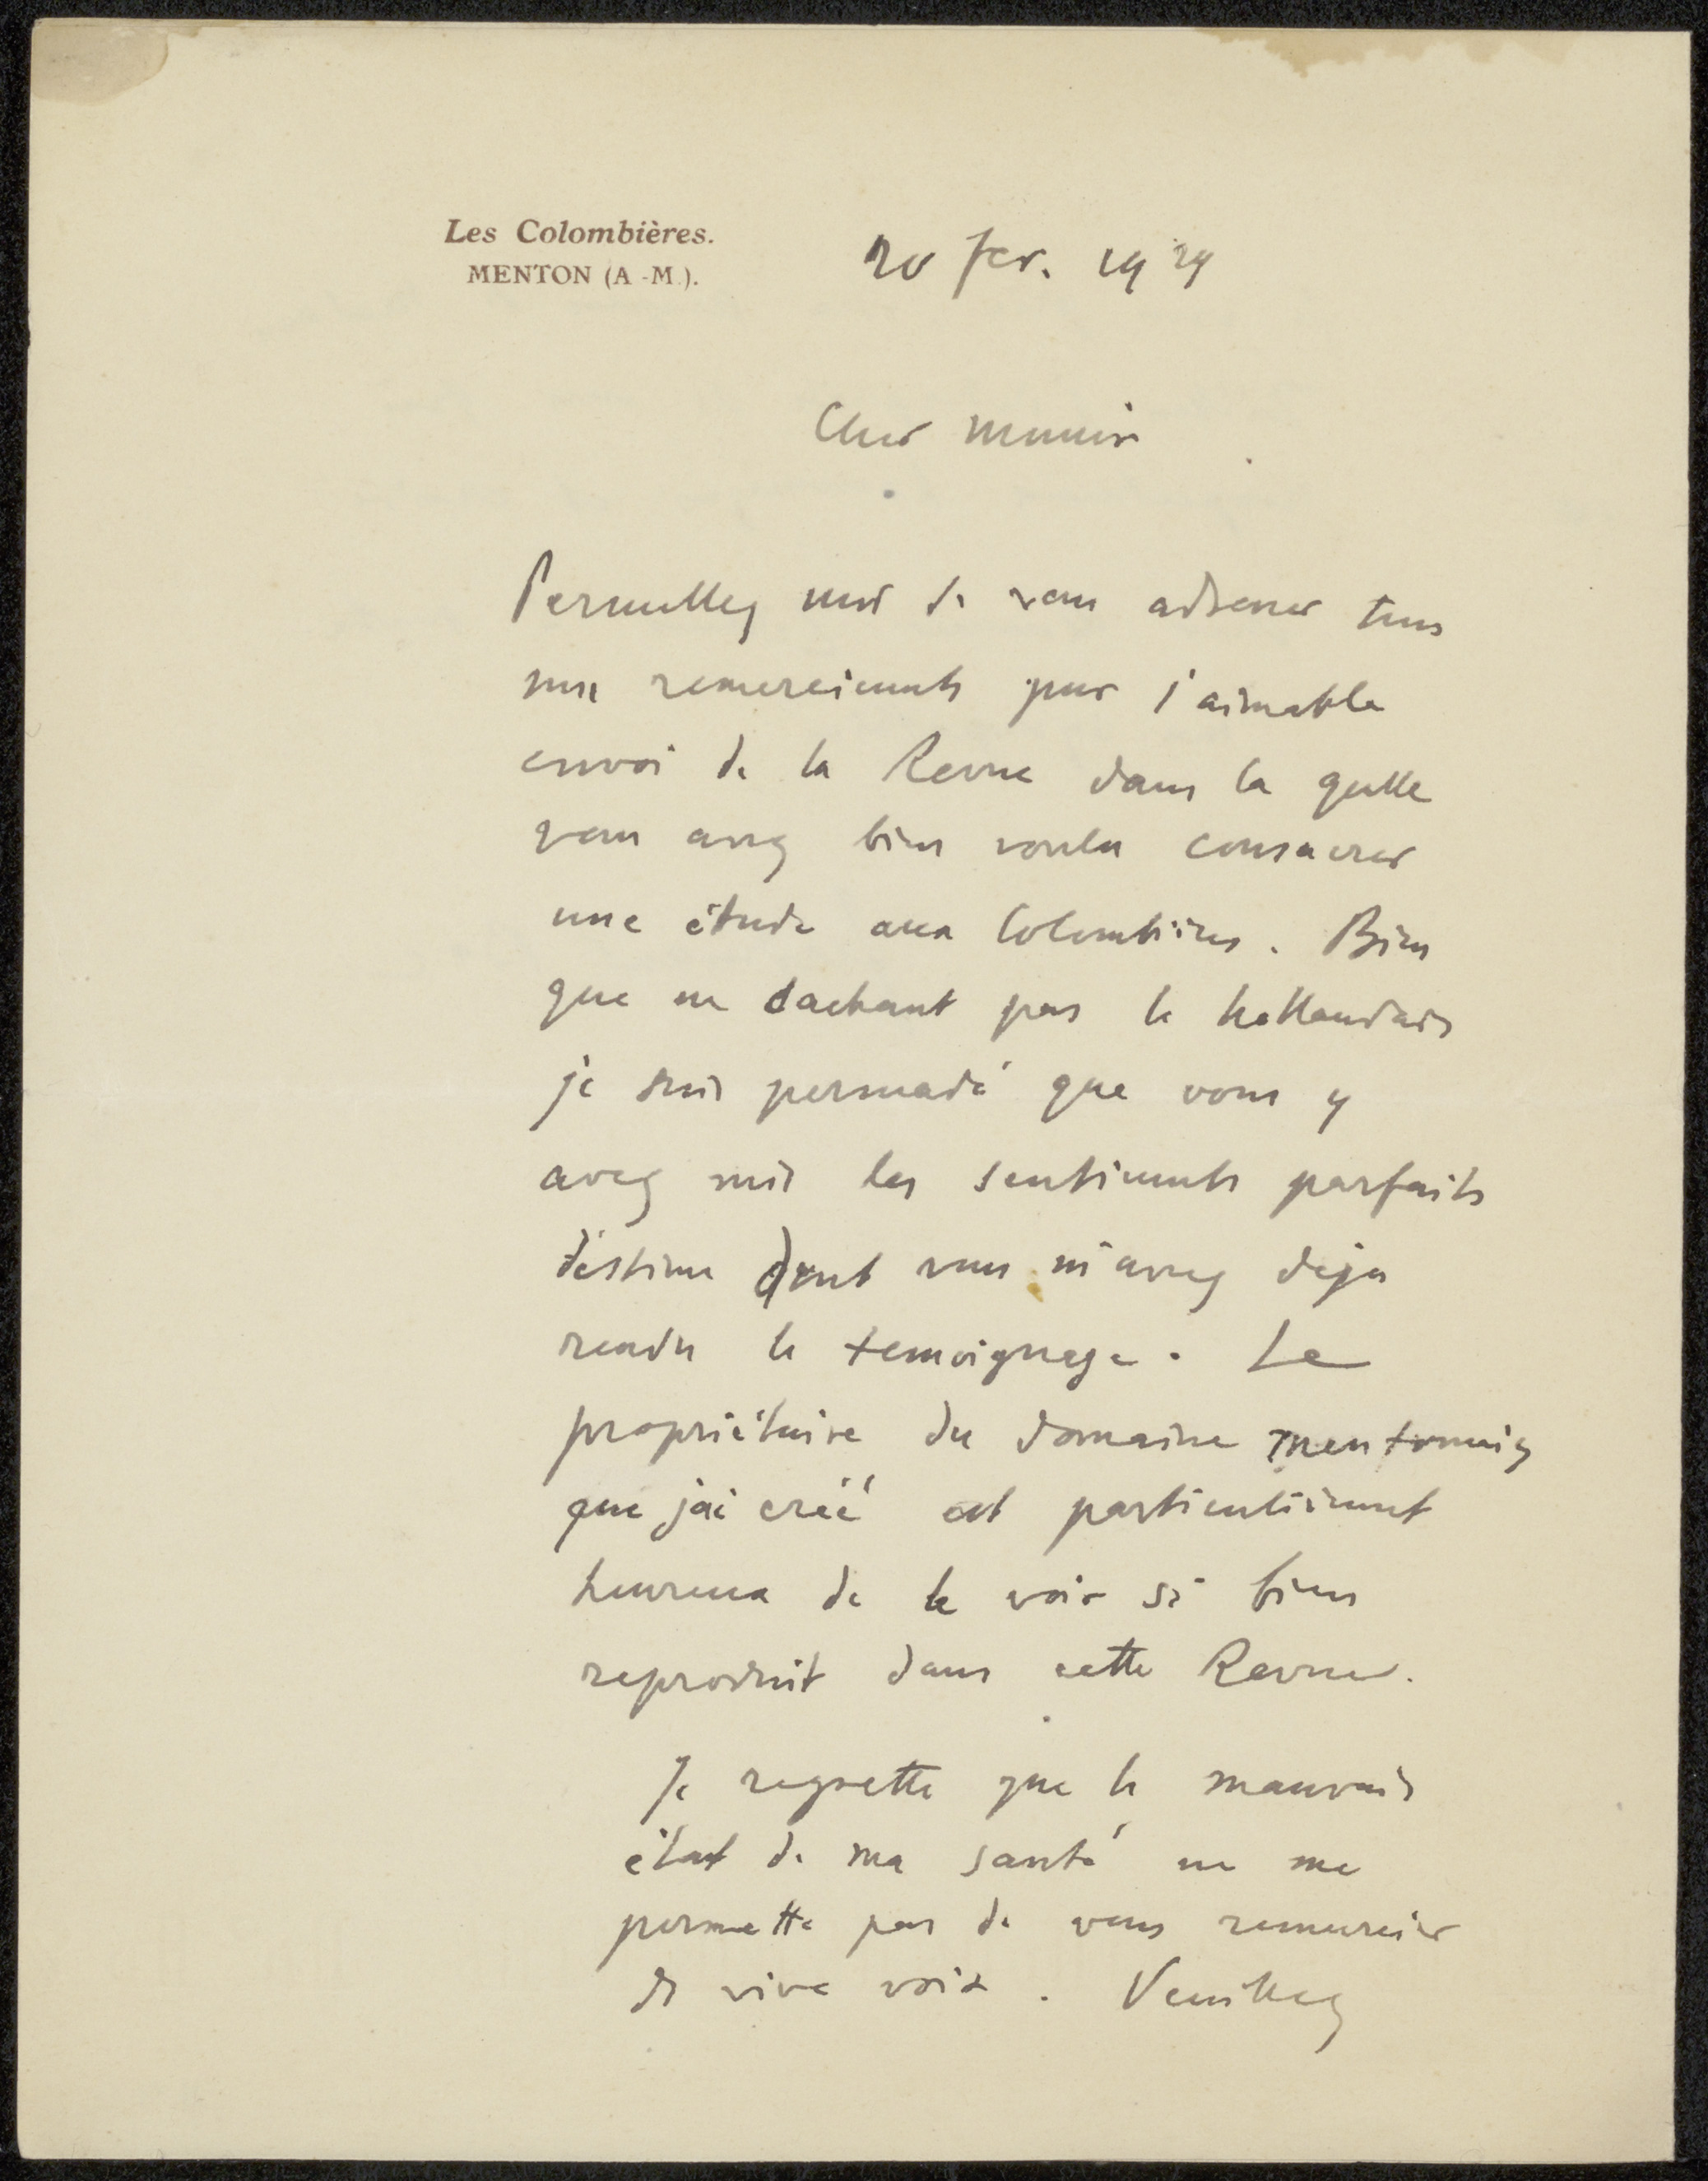 Les Colombières.
MENTON (A.-M.).
20 fev. 1929
Cher Monsieur
Permettez moi de vous adresser tous
mes remerciements pour l'aimable
envoi de la Revue dans la quelle
vous avez bien voulu consacrer
une étude aux Colombières. Bien
que ne sachant pas le hollandais
je suis persuadé que vous y
avez mis les sentiments parfaits
d'estime dont vous m'avez deja
rendu le temoignage. Le
propriétaire du domaine mentonnais
que j'ai créé est particulièrement
heureux de le voir si bien
reproduit dans cette Revue.
Je regrette que le mauvais
état de ma santé ne me
permette pas de vous remercier
de vive voix. Veuillez